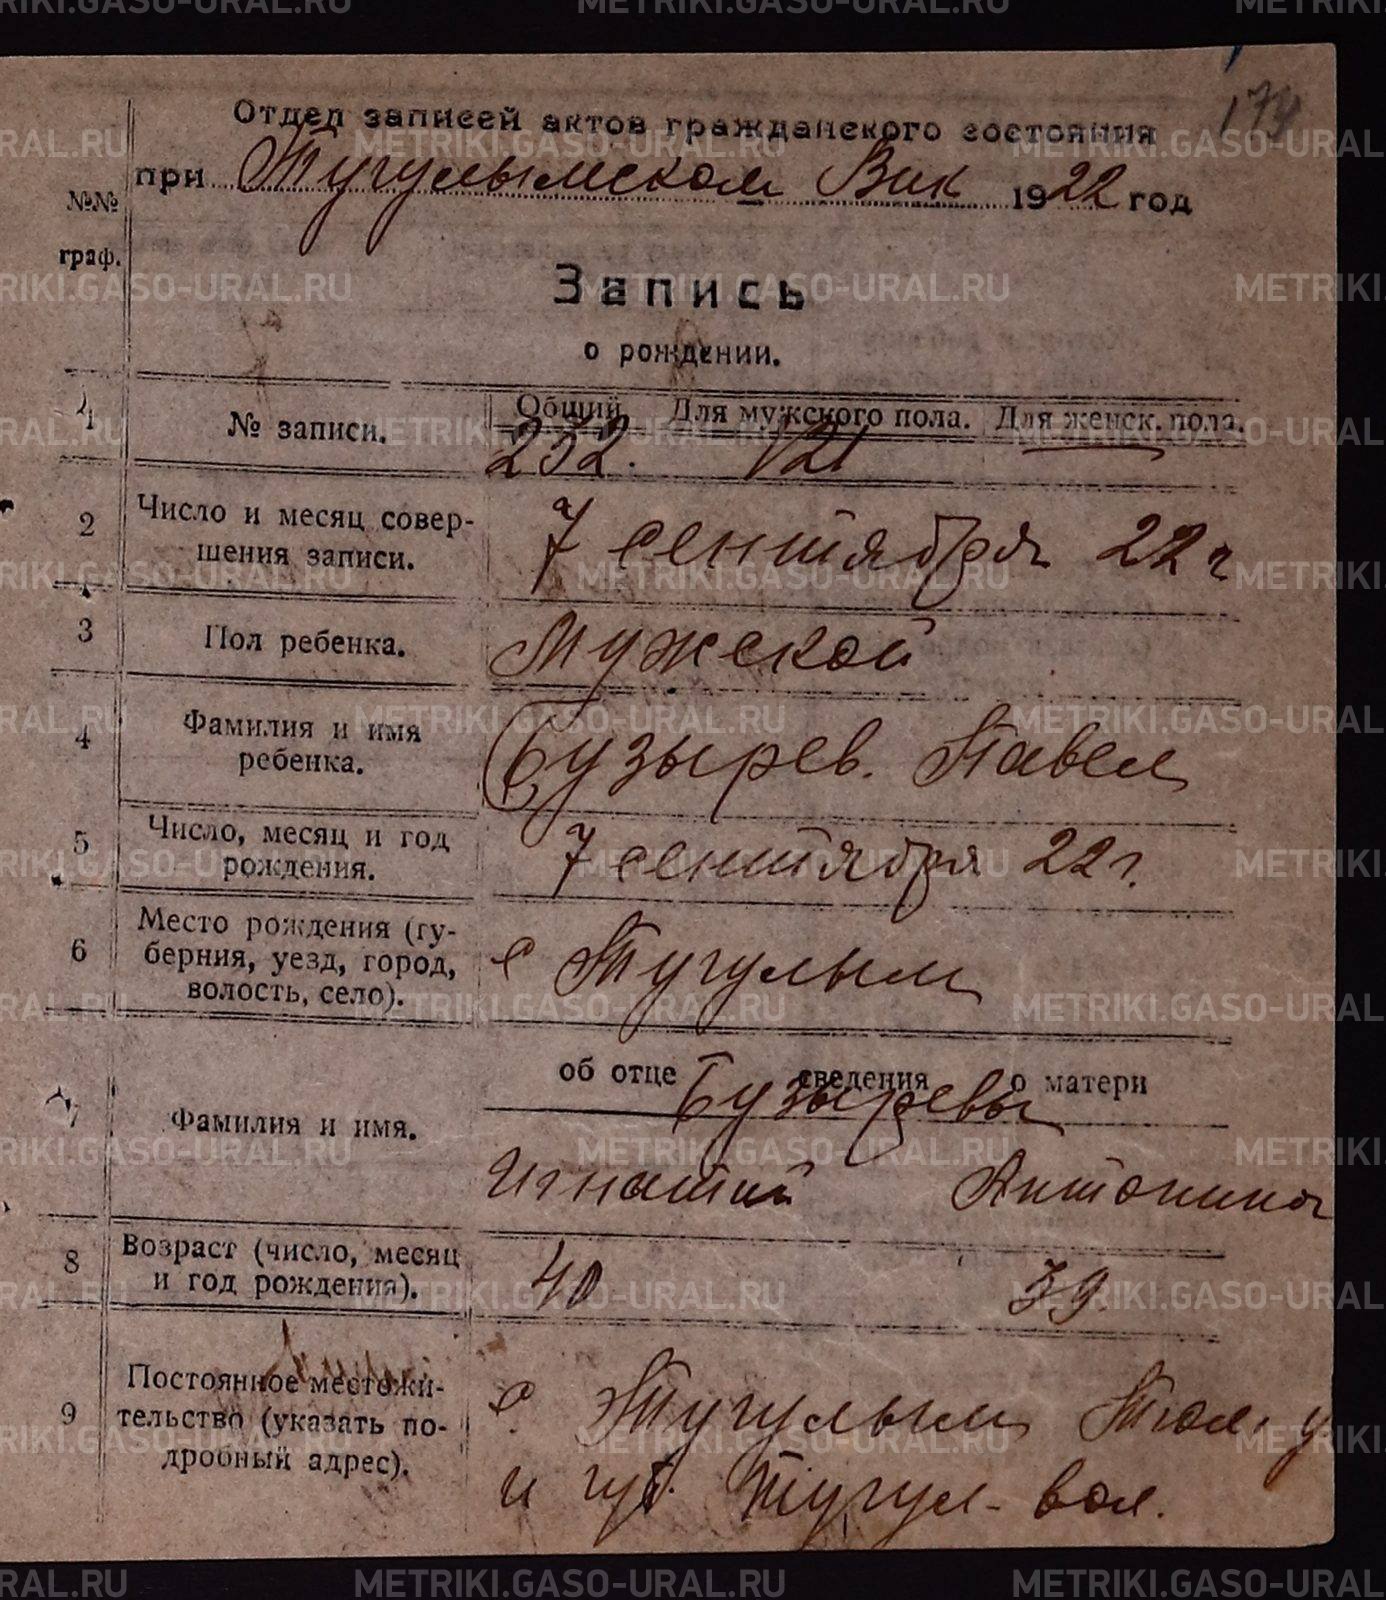 174
Отдел записей актов гражданского состояния
при Тугулымском Вик 1922 год
№№ граф.
Запись
о рождении.
1 № записи. Общий Для мужского пола. Для женск. пола.
232. 121 —
2 Число и месяц совер-
шения записи.
7 сентября 22 г
3 Пол ребенка. Мужской
4 Фамилия и имя
ребенка.
Бузырев. Павел
5 Число, месяц и год
рождения.
7 сентября 22 г.
6 Место рождения (гу-
берния, уезд, город,
волость, село).
с Тугулым
об отце сведения о матери
Бузыревы
7 Фамилия и имя.
Игнатий Антонина
8 Возраст (число, месяц
и год рождения).
40 39.
9 Постоянное местожи-
тельство (указать по-
дробный адрес).
с. Тугулым Тюм. у.
и губ. Тугул- вол.
METRIKI.GASO-URAL.RU